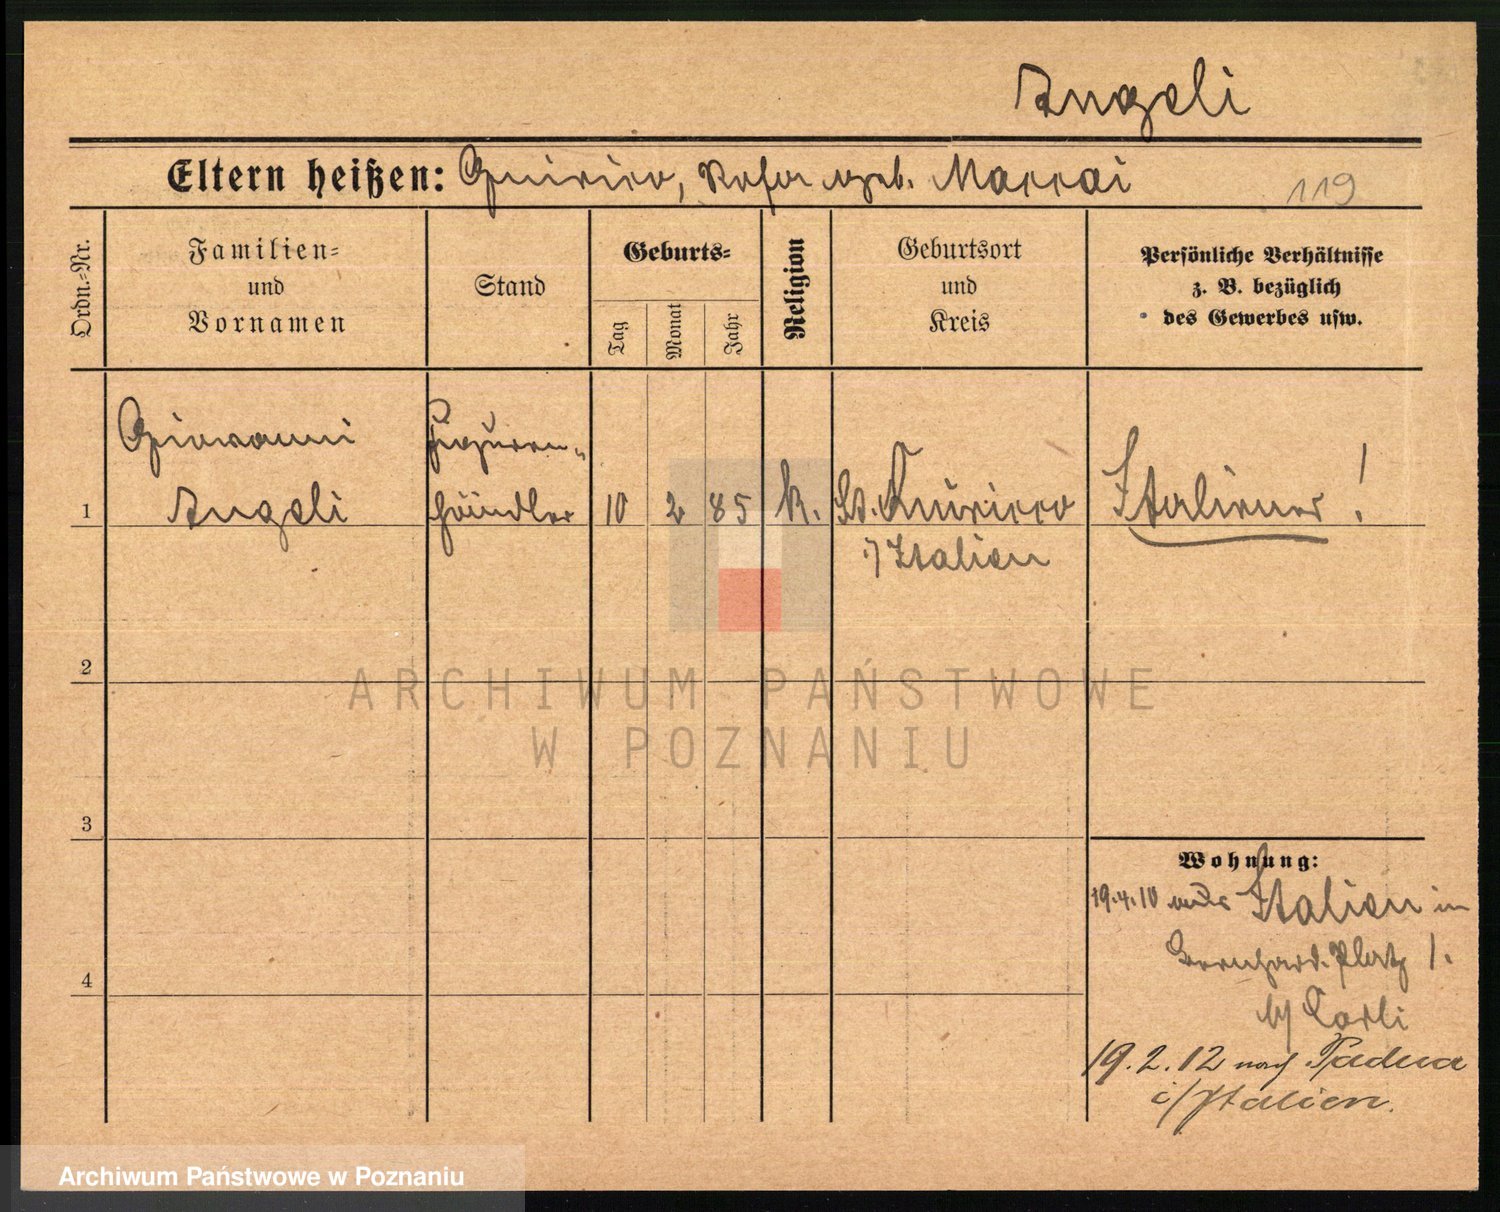 Angeli
Eltern heißen: Quirico, Rosa geb. Marrai
119
Ordn.-Nr.
Familien-
und
Vornamen
Stand
Geburts-
Tag
Monat
Jahr
Religion
Geburtsort
und
Kreis
Persönliche Verhältnisse
z. B. bezüglich
des Gewerbes usw.
Giovanni
Angeli
Figuren-
händler
1
10
2
85
k.
St. Quirico
i/Italien
Italiener!
2
ARCHIWUM PAŃSTWOWE
W POZNANIU
3
4
Wohnung:
19.4.10 aus Italien in
Bernhard. Platz 1.
b/ Carli
19.2.12 nach Padua
i/Italien.
Archiwum Państwowe w Poznaniu